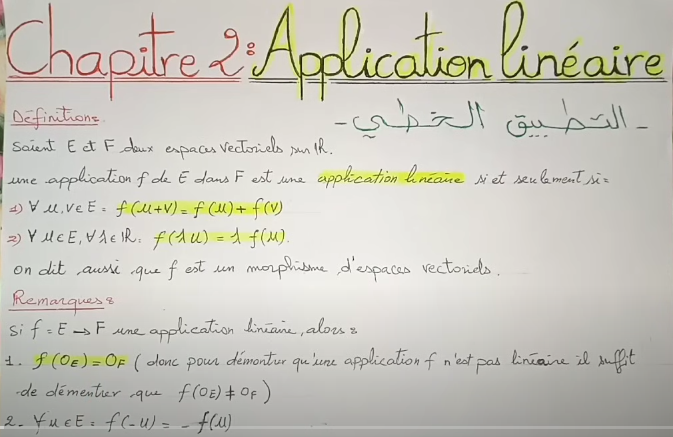 Chapitre 2: Application linéaire
- التطبيق الخطي -
Définition:
Soient E et F deux espaces vectoriels sur IR.
une application f de E dans F est une application linéaire si et seulement si:
1) ∀ u,v ∈ E: f(u+v) = f(u) + f(v)
2) ∀ u ∈ E, ∀ λ ∈ IR: f(λu) = λ f(u).
on dit aussi que f est un morphisme d'espaces vectoriels.
Remarques:
Si f: E → F une application linéaire, alors:
1. f(0E) = 0F (donc pour démontrer qu'une application f n'est pas linéaire il suffit
de démontrer que f(0E) ≠ 0F)
2. ∀ u ∈ E: f(-u) = - f(u)